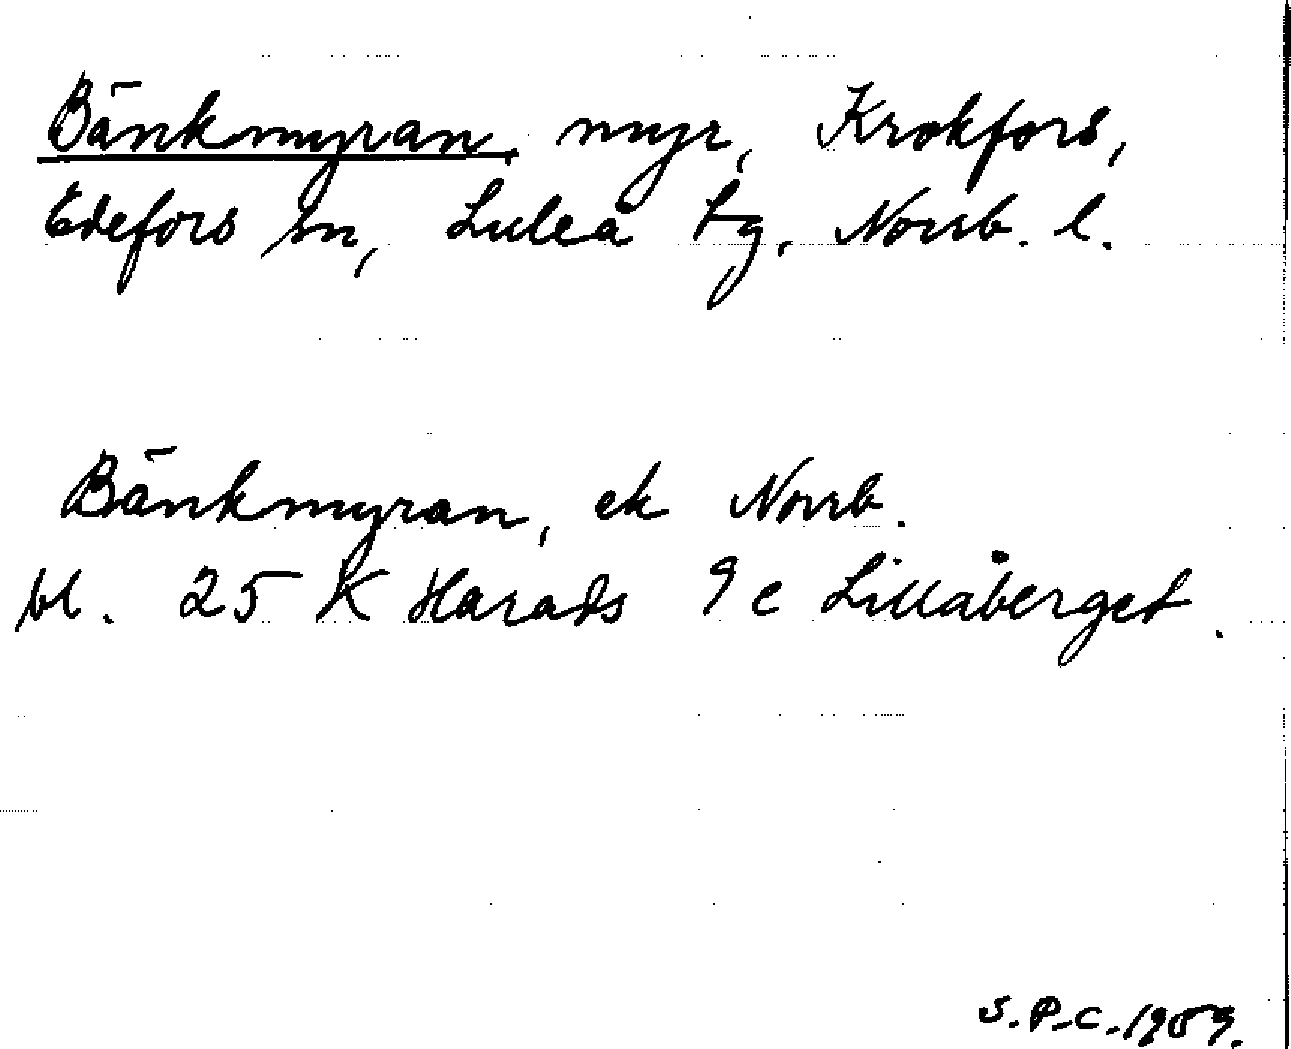 Bänkmyran, myr, Krokfors,
Edefors sn, Luleå tg, Norrb. l.
Bänkmyran, ek Norrb.
bl. 25 K Harads 9 e Lillåberget.
S.P.C. 1989.